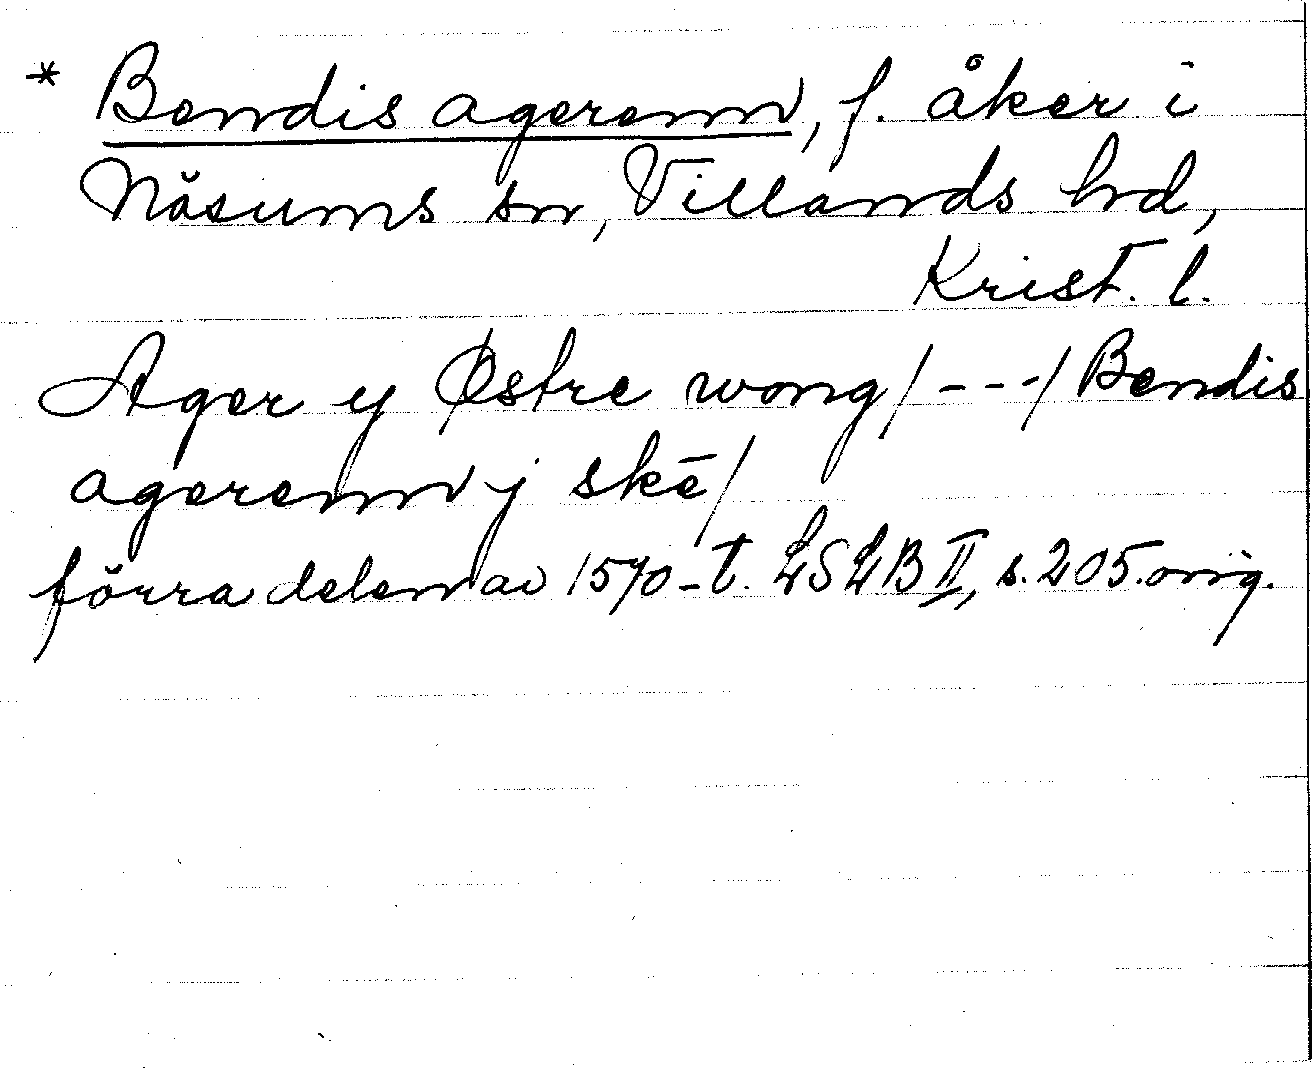 * Bendis agerenn, f. åker i
Näsums sn, Villands hd,
Krist. l.
Ager y Østre wong/---/Bendis
agerenn j skē/
förra delen av 1570-t. LSLB II, s. 205. orig.